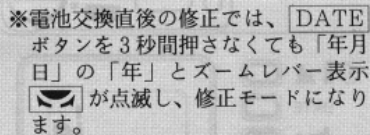 ※電池交換直後の修正では、DATE
ボタンを3秒間押さなくても「年月
日」の「年」とズームレバー表示
が点滅し、修正モードになり
ます。